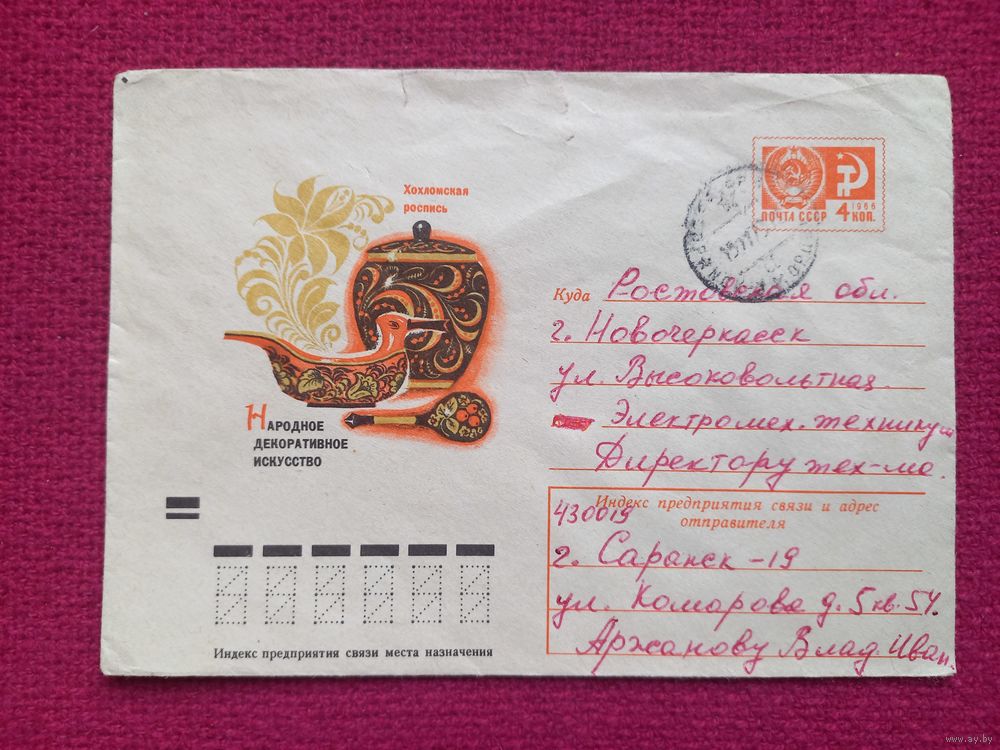 Хохломская
роспись
Народное
декоративное
искусство
ПОЧТА СССР
1966
4 КОП.
Куда Ростовская обл.
г. Новочеркасск
ул. Высоковольтная
Электромех. техникум
Директору тех-ма.
Индекс предприятия связи и адрес
отправителя
430019
г. Саранск -19
ул. Комарова д. 5 кв. 54.
Аржанову Влад. Иван.
Индекс предприятия связи места назначения
www.ay.by